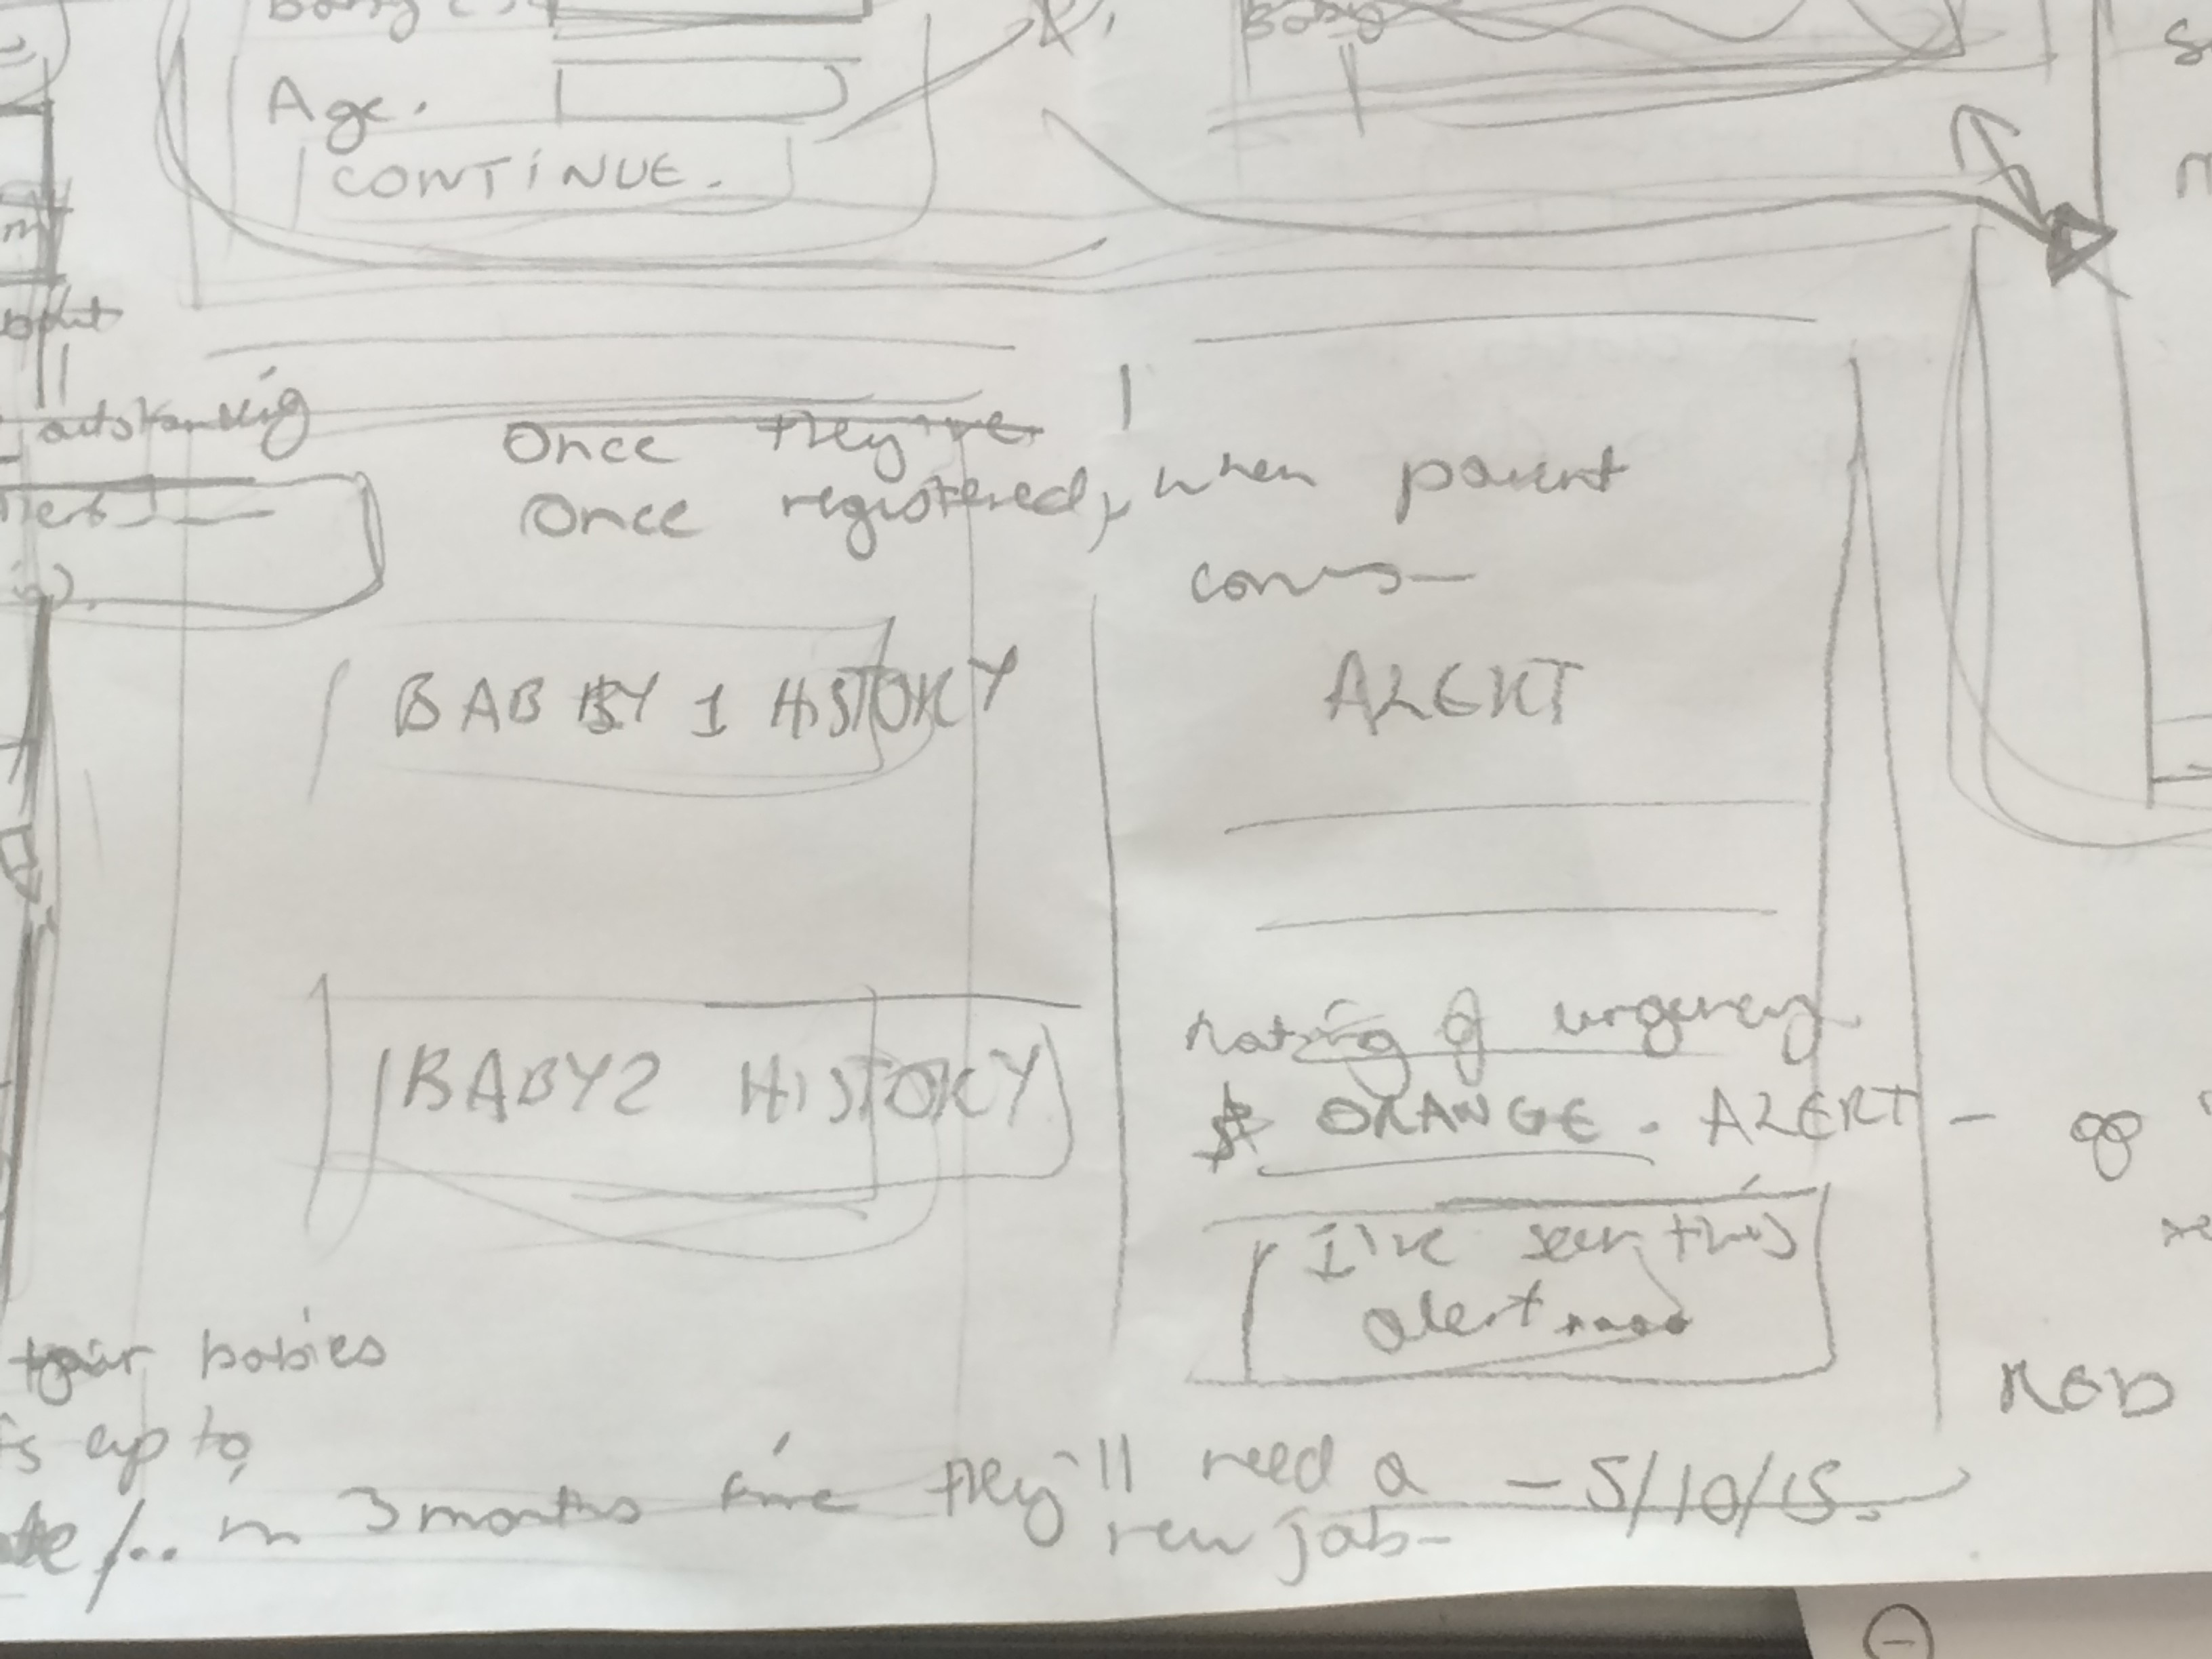 Baby
Age.
CONTINUE.
Baby
outstanding
Once they've
Once registered, when parent
comes
BABBY 1 HISTORY
ALERT
BABY2 HISTORY
Rating of urgency
ORANGE. ALERT -
I've seen this
alert....
babies
RED
is up to
/.. in 3 months time they'll need a - 5/10/15.
new jab-